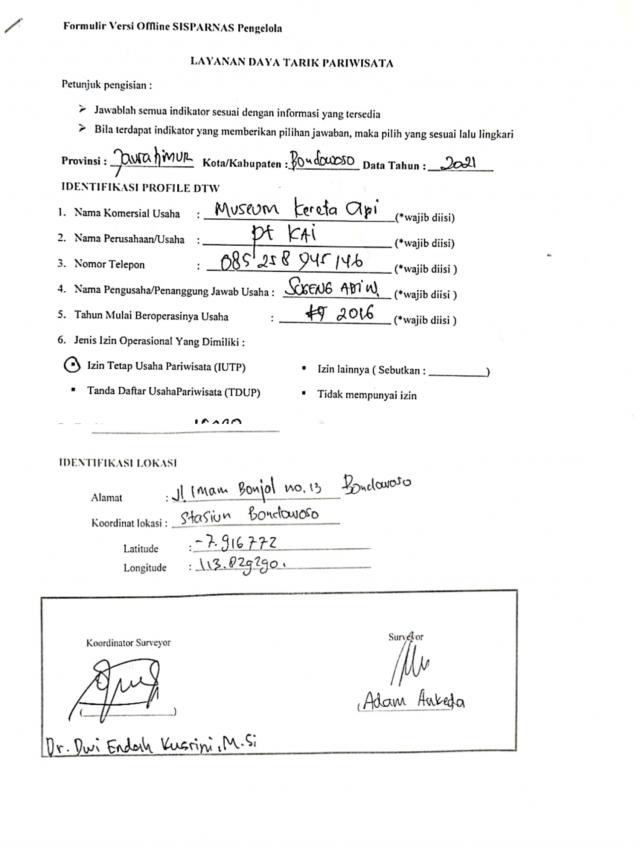 Formulir Versi Offline SISPARNAS Pengelola
LAYANAN DAYA TARIK PARIWISATA
Petunjuk pengisian :
➢ Jawablah semua indikator sesuai dengan informasi yang tersedia
➢ Bila terdapat indikator yang memberikan pilihan jawaban, maka pilih yang sesuai lalu lingkari
Provinsi : Jawa timur Kota/Kabupaten : Bondowoso Data Tahun : 2021
IDENTIFIKASI PROFILE DTW
1. Nama Komersial Usaha : Museum Kereta Api (*wajib diisi)
2. Nama Perusahaan/Usaha : pt KAI (*wajib diisi)
3. Nomor Telepon : 085 258 945 146 (*wajib diisi )
4. Nama Pengusaha/Penanggung Jawab Usaha : ADI W. (*wajib diisi )
5. Tahun Mulai Beroperasinya Usaha : 2016 (*wajib diisi )
6. Jenis Izin Operasional Yang Dimiliki :
Izin Tetap Usaha Pariwisata (IUTP) ▪ Izin lainnya ( Sebutkan : ________ )
▪ Tanda Daftar UsahaPariwisata (TDUP) ▪ Tidak mempunyai izin
IDENTIFIKASI LOKASI
Alamat : Jl Imam Bonjol no. 13 Bondowoso
Koordinat lokasi : Stasiun Bondowoso
Latitude : -7.916772
Longitude : 113.829290.
Koordinator Surveyor Surveyor
Adam
Dr. Dwi Endah Kusrini, M.Si